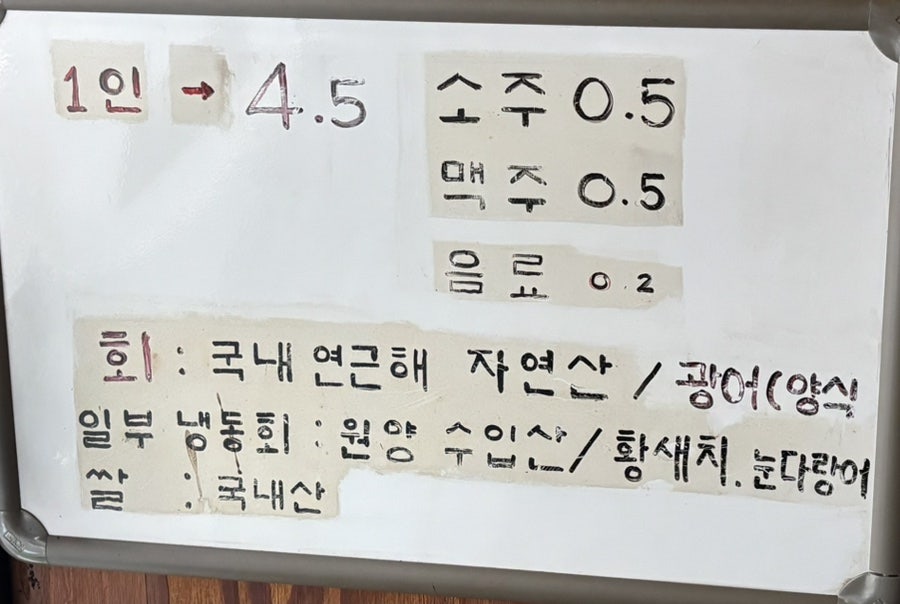 1인 → 4.5
소주 0.5
맥주 0.5
음료 0.2
회 : 국내 연근해 자연산 / 광어(양식
일부 냉동회 : 원양 수입산 / 황새치. 눈다랑어
쌀 : 국내산